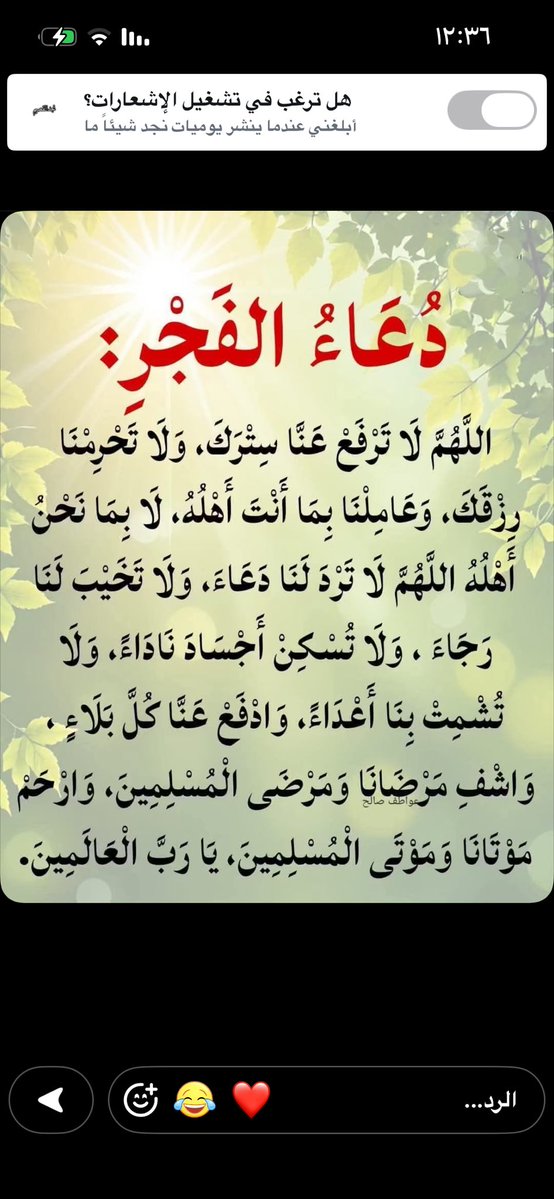 ١٢:٣٦
هل ترغب في تشغيل الإشعارات؟
أبلغني عندما ينشر يوميات نجد شيئاً ما
دُعَاءُ الفَجْرِ:
اللَّهُمَّ لَا تَرْفَعْ عَنَّا سِتْرَكَ، وَلَا تَحْرِمْنَا
رِزْقَكَ، وَعَامِلْنَا بِمَا أَنْتَ أَهْلُهُ، لَا بِمَا نَحْنُ
أَهْلُهُ اللَّهُمَّ لَا تَرْدَ لَنَا دَعَاءَ، وَلَا تَخَيْبَ لَنَا
رَجَاءَ ، وَلَا تُسْكِنْ أَجْسَادَ نَادَاءً، وَلَا
تُشْمِتْ بِنَا أَعْدَاءً، وَادْفَعْ عَنَّا كُلَّ بَلَاءٍ ،
وَاشْفِ مَرْضَانَا وَمَرْضَى الْمُسْلِمِينَ، وَارْحَمْ
عواطف صالح
مَوْتَانَا وَمَوْتَى الْمُسْلِمِينَ، يَا رَبَّ الْعَالَمِينَ.
الرد...